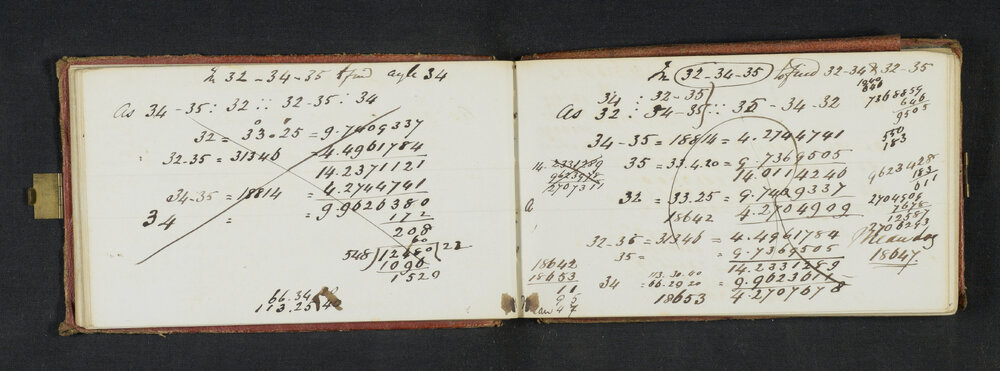 In 32-34-35 to find angle 34
As 34-35 : 32 :: 32-35 : 34
32 = 33.25 = 9.7409337
32-35 = 31346 = 4.4961784
14.2371121
34-35 = 18814 = 4.2744741
34 = = 9.9626380
172
208
60
548)12480(22
1096
1520
66.34
113.25
In 32-34-35 to find 32-34 & 32-35
34 : 32-35
As 32 : 34-35 :: 35 - 34-32
34-35 = 18814 = 4.2744741
35 = 33.4.20 = 9.7369505
14.0114246
32 = 33.25 = 9.7409337
18642 4.2704909
32-35 = 31346 = 4.4961784
35 = 9.7369505
14.2331289
113.30.00
34 = 66.29.20 = 9.9623611
18653 4.2707678
14.2331289
9623978
2707311
a
18642
18653
11
95
47
1040
846
7368859
646
9505
550
183
9623428
183
611
2704506
7678
12587
2706293
Mean
18647